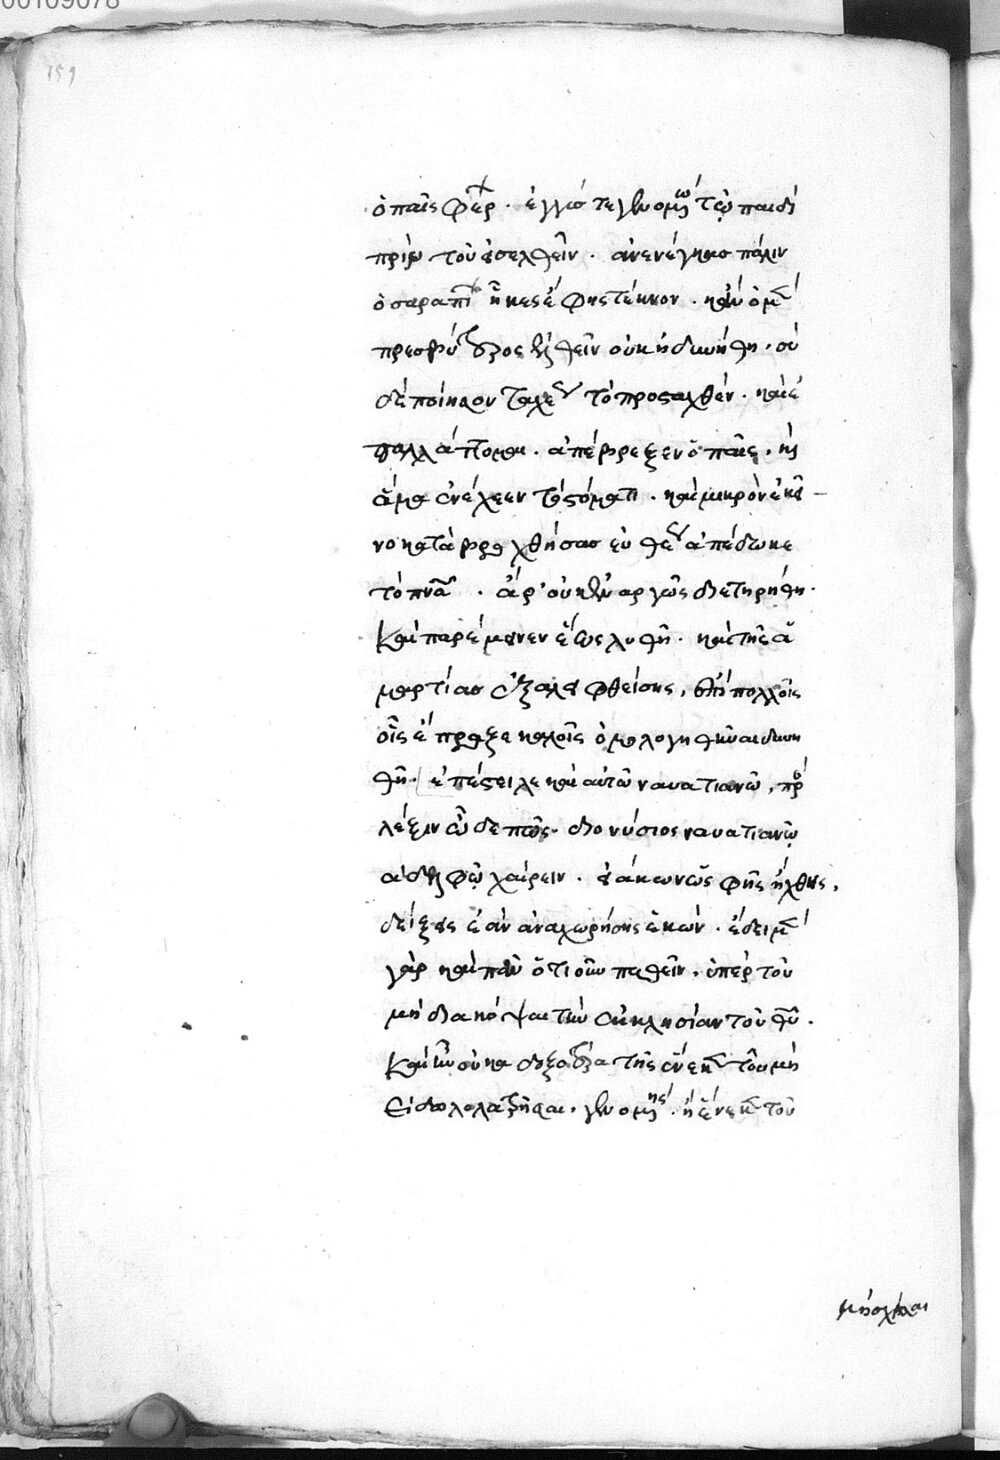 00109078
159
ὁ παῖς φέρ· ἐγγύς τε γενομ τῷ παιδὶ
πρὶν τοῦ εἰσελθεῖν· ἀνενέγκας πάλιν
ὁ σαραπί ἧκες ἔφης τέκνον· καὶ ὁ μ
πρεσβύτερος ἐλθεῖν οὐκ ἠδυνήθη· σὺ
δὲ ποίησον ταχέ τὸ προσταχθέν· καί με
ἀπέβρεξεν ὁ παῖς, καὶ
ἅμα ἐνέχεεν τῷ στόματι· καὶ μικρὸν ἐκεῖ
νο καταβροχθήσας εὐθέ ἀπέδωκε
τὸ πνᾶ· ἆρ' οὐκ ἐναργῶς διετηρήθη·
καὶ παρέμεινεν ἕως λυθῇ· καὶ τῆς ἁ
μαρτίας ἐξαλειφθείσης, ἐπὶ πολλοῖς
οἷς ἔπραξε καλοῖς ὁμολογηθῆναι δυνη
θῇ· ἐπέστειλε καὶ αὐτῶ ναυατιανῶ, πρ
λέξιν ὧδέ πως· διονύσιος ναυατιανῷ
ἀδελφῷ χαίρειν· εἰ ἄκων ὡς φῂς ἤχθης,
δείξεις ἐὰν ἀναχωρήσης ἑκών· ἔδει μ
γὰρ καὶ πᾶν ὅτι οὖν παθεῖν, ὑπὲρ τοῦ
μὴ διακόψαι τὴν ἐκκλησίαν τοῦ θῦ·
καὶ ἦν οὐκ ἀδοξοτέρα τῆς ἕνεκ τοῦ μὴ
εἰδωλολατρῆσαι, γενομ ἡ ἕνεκ τοῦ
μὴ σχίσαι